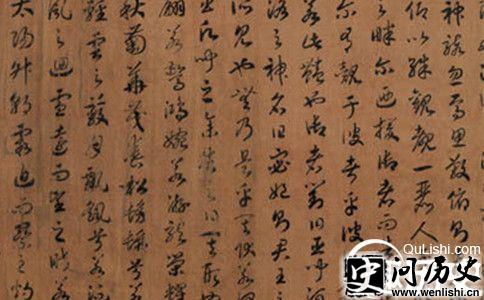 神駭忽焉思散俯則
仰以殊觀覩一麗人
之畔尒迺援御者而
尒有覿于彼者乎彼
若此豔也御者對曰臣聞河
洛之神名曰宓妃則君王
所見也無乃是乎其狀若
之余告之曰其形
翩若驚鴻婉若遊龍榮曜
秋菊華茂春松髣髴兮若
輕雲之蔽月飄颻兮若
風之迴雪遠而望之皎若
太陽升朝霞迫而察之灼
QuLiShi.com
史问历史
www.wenlishi.cn